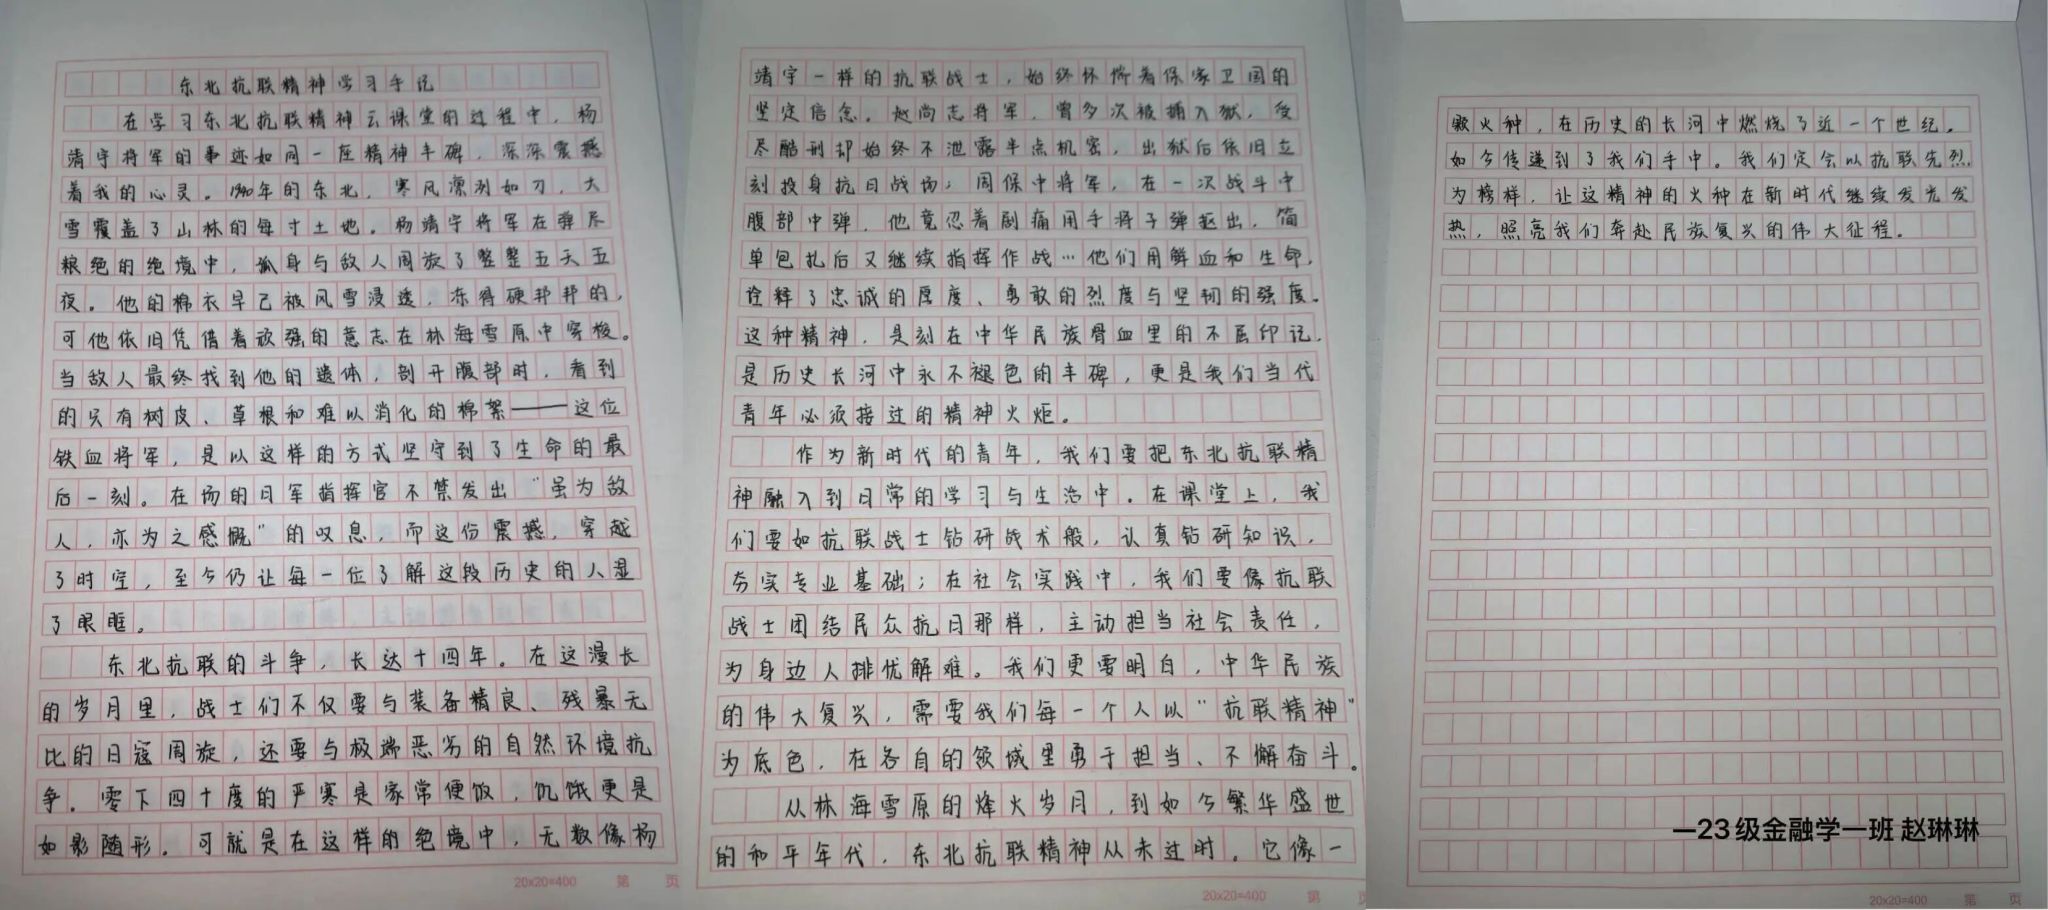 东北抗联精神学习手记
在学习东北抗联精神云课堂的过程中，杨
靖宇将军的事迹如同一座精神丰碑，深深震撼
着我的心灵。1940年的东北，寒风凛冽如刀，大
雪覆盖了山林的每寸土地。杨靖宇将军在弹尽
粮绝的绝境中，孤身与敌人周旋了整整五天五
夜。他的棉衣早已被风雪浸透，冻得硬邦邦的，
可他依旧凭借着顽强的意志在林海雪原中穿梭。
当敌人最终找到他的遗体，剖开腹部时，看到
的只有树皮、草根和难以消化的棉絮——这位
铁血将军，是以这样的方式坚守到了生命的最
后一刻。在场的日军指挥官不禁发出“虽为敌
人，亦为之感慨”的叹息，而这份震撼，穿越
了时空，至今仍让每一位了解这段历史的人湿
了眼眶。
东北抗联的斗争，长达十四年。在这漫长
的岁月里，战士们不仅要与装备精良、残暴无
比的日寇周旋，还要与极端恶劣的自然环境抗
争。零下四十度的严寒是家常便饭，饥饿更是
如影随形。可就是在这样的绝境中，无数像杨
20x20=400 第 页
靖宇一样的抗联战士，始终怀揣着保家卫国的
坚定信念。赵尚志将军，曾多次被捕入狱，受
尽酷刑却始终不泄露半点机密，出狱后依旧立
刻投身抗日战场；周保中将军，在一次战斗中
腹部中弹，他竟忍着剧痛用手将子弹抠出，简
单包扎后又继续指挥作战…他们用鲜血和生命，
诠释了忠诚的厚度、勇敢的烈度与坚韧的强度。
这种精神，是刻在中华民族骨血里的不屈印记，
是历史长河中永不褪色的丰碑，更是我们当代
青年必须接过的精神火炬。
作为新时代的青年，我们要把东北抗联精
神融入到日常的学习与生活中。在课堂上，我
们要如抗联战士钻研战术般，认真钻研知识，
夯实专业基础；在社会实践中，我们要像抗联
战士团结民众抗日那样，主动担当社会责任，
为身边人排忧解难。我们更要明白，中华民族
的伟大复兴，需要我们每一个人以“抗联精神”
为底色，在各自的领域里勇于担当、不懈奋斗。
从林海雪原的烽火岁月，到如今繁华盛世
的和平年代，东北抗联精神从未过时。它像一
20x20=400 第 页
颗火种，在历史的长河中燃烧了近一个世纪，
如今传递到了我们手中。我们定会以抗联先烈
为榜样，让这精神的火种在新时代继续发光发
热，照亮我们奔赴民族复兴的伟大征程。
—23级金融学一班 赵琳琳
20x20=400 第 页